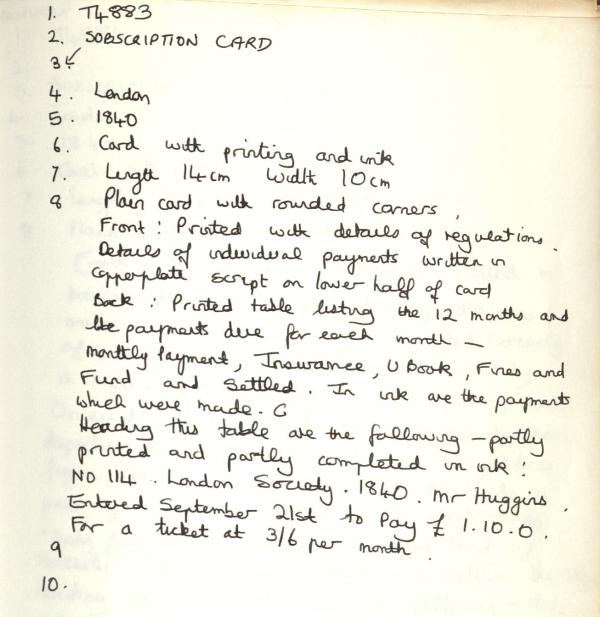 1. T4883
2. SOBSCRIPTION CARD
3.
4. London
5. 1840
6. Card with printing and ink
7. Length 14cm Width 10cm
8 Plain card with rounded corners,
Front : Printed with details of regulations.
Details of individual payments written in
copperplate script on lower half of card
Back : Printed table listing the 12 months and
the payments due for each month –
monthly Payment, Insurance, U Book, Fines and
Fund and Settled. In ink are the payments
which were made. G
Heading this table are the following – partly
printed and partly completed in ink :
No 114. London Society. 1840. Mr Huggins.
Entered September 21st to Pay £ 1.10.0.
For a ticket at 3/6 per month.
9
10.